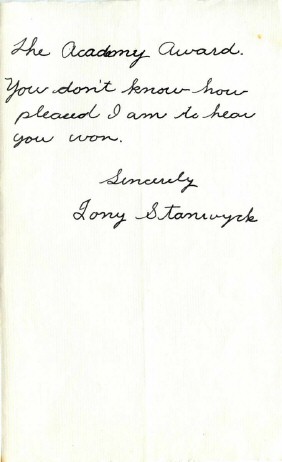 The Academy Award.
You don't know how
pleased I am to hear
you won.
Sincerely
Tony Stanwyck